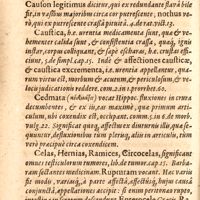 Causon legitimus dicitur, qui ex redundante flava bile
fit, in vastius majoribus circa cor putrescente, nothus ve
rò, qui ex putrescente crassa pituita. 4. de rat. vict. 13.
Caustica, h.e. urentia medicamenta sunt, quæ & ve
hementer calida sunt, & consistentia crassa, quæq; ignis
instar, corpus colliquant, & cæpe escharas, h.e. crustas effi
ciunt, 5. de simpl. cap. 15. Inde & affectiones causticæ,
& caustica excrementa, i.e. urentia appellantur, quæ-
rum virtus est, morbum & acutum & periculosum & ve
lociter judicandum reddere. com. 2. in 1. prorrhet. 60.
Cedmata vocat Hippoc. fluxiones in crura
decumbentes, & ex iis, ut maximè, quæ primum arti-
culum, ubi coxendix est, occupant. comm. 5. in 6. de morb.
vulg. 22. Significat quoq; affectum diuturnum illi, quæ se-
quuntur, defluxiones tum plerũq; alias in articulis, cùm
verò præcipuè circa coxendicem.
Celas, Hernias, Ramices, Circocelas, significant
omnes testiculorum tumores, lib. de tumor. cap. 15. Barba-
rum sectantes medicinam. Rupturam vocant. Hæc variis
fit modis, variatq; à parte affecta, affectibq; hujus causâ
conjunctâ, appellationes accipit: si enim peritoneo rupto,